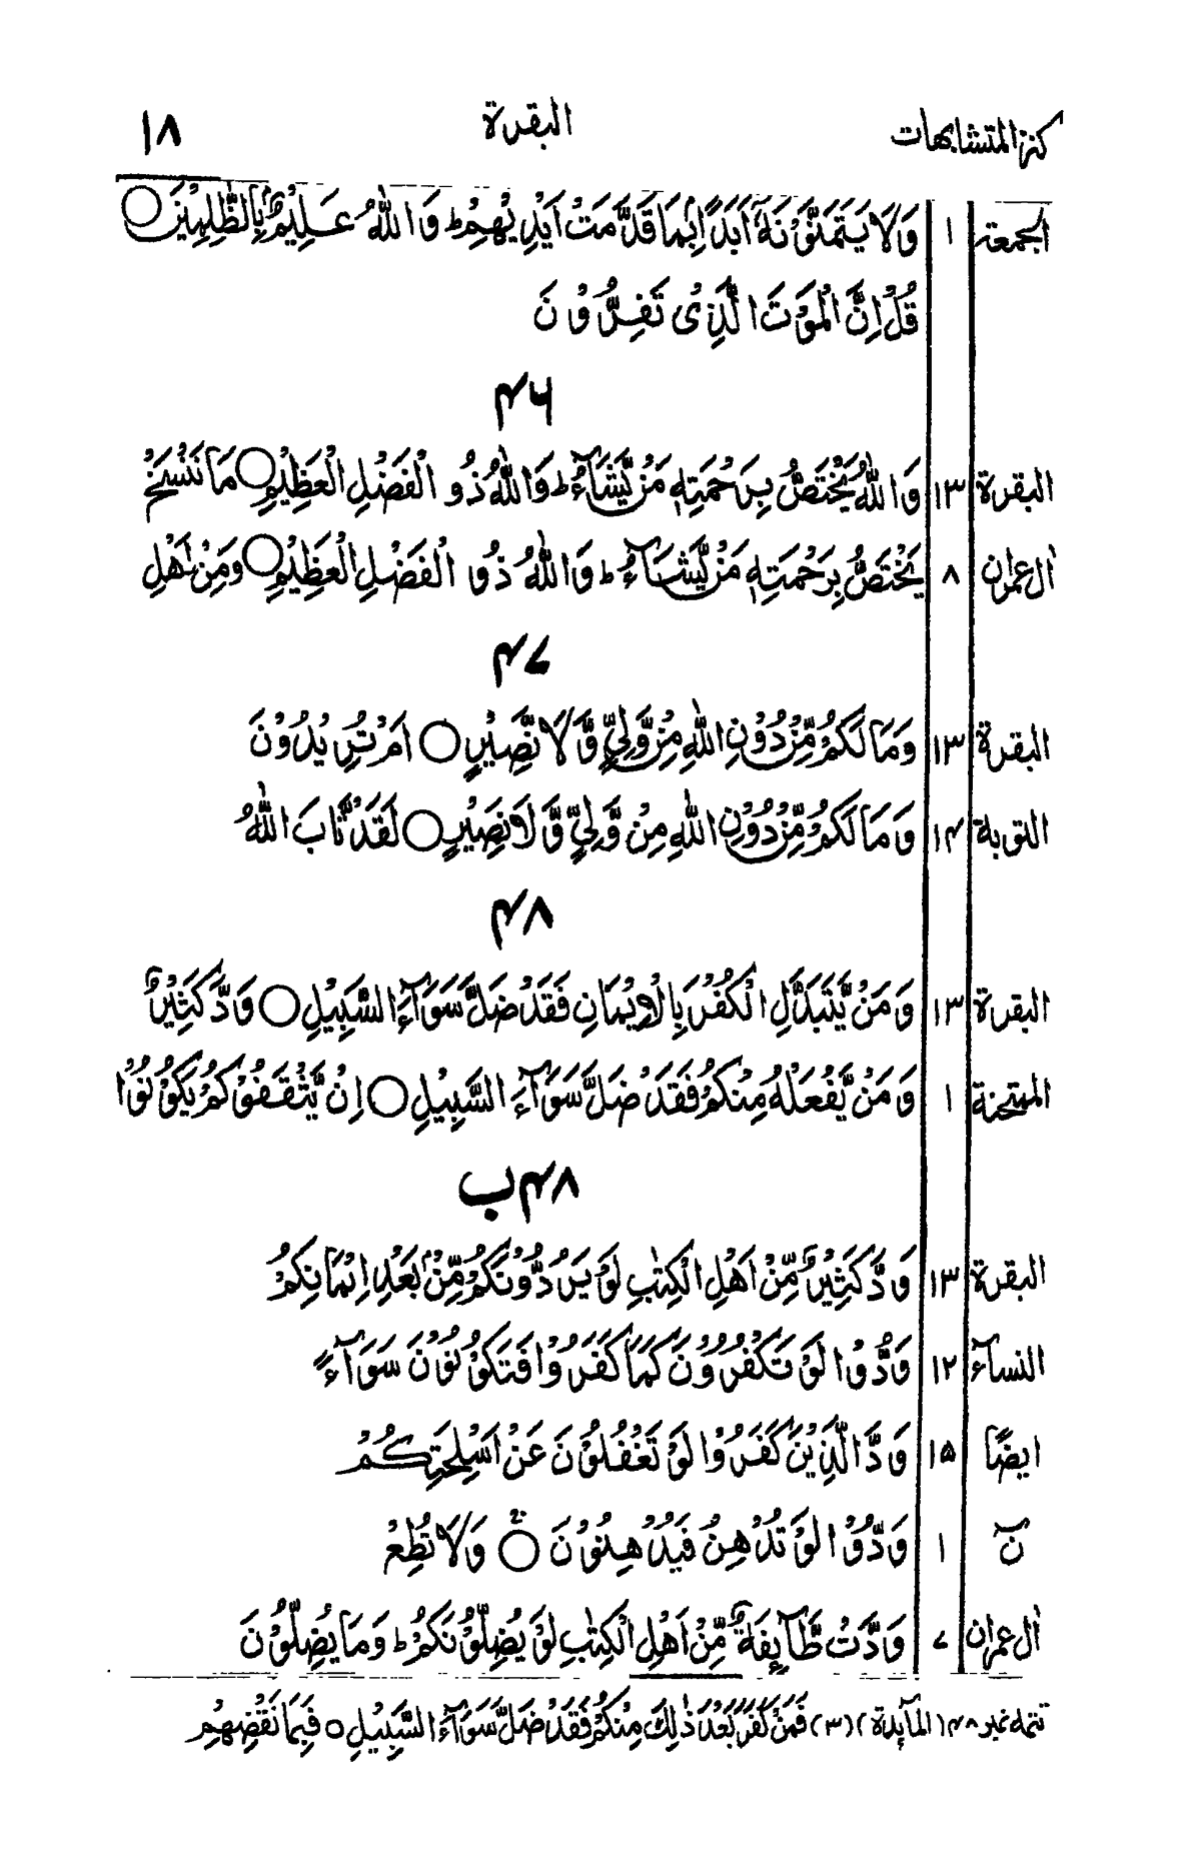 كنز المتشابهات البقرة ١٨
الجمعة ١ وَلَا يَتَمَنَّوْنَهٗٓ اَبَدًۢا بِمَا قَدَّمَتْ اَيْدِيْهِمْ ؕ وَاللّٰهُ عَلِيْمٌۢ بِالظّٰلِمِيْنَ ○
قُلْ اِنَّ الْمَوْتَ الَّذِىْ تَفِرُّوْنَ
۴۶
البقرة ١٣ وَاللّٰهُ يَخْتَصُّ بِرَحْمَتِهٖ مَنْ يَّشَآءُ ؕ وَاللّٰهُ ذُو الْفَضْلِ الْعَظِيْمِ ○ مَا نَنْسَخْ
اٰل عمران ٨ يَخْتَصُّ بِرَحْمَتِهٖ مَنْ يَّشَآءُ ؕ وَاللّٰهُ ذُو الْفَضْلِ الْعَظِيْمِ ○ وَمِنْ اَهْلِ
۴۷
البقرة ١٣ وَمَا لَكُمْ مِّنْ دُوْنِ اللّٰهِ مِنْ وَّلِيٍّ وَّلَا نَصِيْرٍ ○ اَمْ تُرِيْدُوْنَ
التوبة ۱۴ وَمَا لَكُمْ مِّنْ دُوْنِ اللّٰهِ مِنْ وَّلِيٍّ وَّلَا نَصِيْرٍ ○ لَقَدْ تَّابَ اللّٰهُ
۴۸
البقرة ١٣ وَمَنْ يَّتَبَدَّلِ الْكُفْرَ بِالْاِيْمَانِ فَقَدْ ضَلَّ سَوَآءَ السَّبِيْلِ ○ وَدَّ كَثِيْرٌ
الممتحنة ١ وَمَنْ يَّفْعَلْهُ مِنْكُمْ فَقَدْ ضَلَّ سَوَآءَ السَّبِيْلِ ○ اِنْ يَّثْقَفُوْكُمْ يَكُوْنُوْا
۴۸ ب
البقرة ١٣ وَدَّ كَثِيْرٌ مِّنْ اَهْلِ الْكِتٰبِ لَوْ يَرُدُّوْنَكُمْ مِّنْۢ بَعْدِ اِيْمَانِكُمْ
النسآء ١٢ وَدُّوْا لَوْ تَكْفُرُوْنَ كَمَا كَفَرُوْا فَتَكُوْنُوْنَ سَوَآءً
ايضًا ۱۵ وَدَّ الَّذِيْنَ كَفَرُوْا لَوْ تَغْفُلُوْنَ عَنْ اَسْلِحَتِكُمْ
نٓ ١ وَدُّوْا لَوْ تُدْهِنُ فَيُدْهِنُوْنَ ○ وَلَا تُطِعْ
اٰل عمران ۷ وَدَّتْ طَّآئِفَةٌ مِّنْ اَهْلِ الْكِتٰبِ لَوْ يُضِلُّوْنَكُمْ ؕ وَمَا يُضِلُّوْنَ
تتمه نمبر ۴۸ (المآئدة) (٣) فَمَنْ كَفَرَ بَعْدَ ذٰلِكَ مِنْكُمْ فَقَدْ ضَلَّ سَوَآءَ السَّبِيْلِ ○ فَبِمَا نَقْضِهِمْ